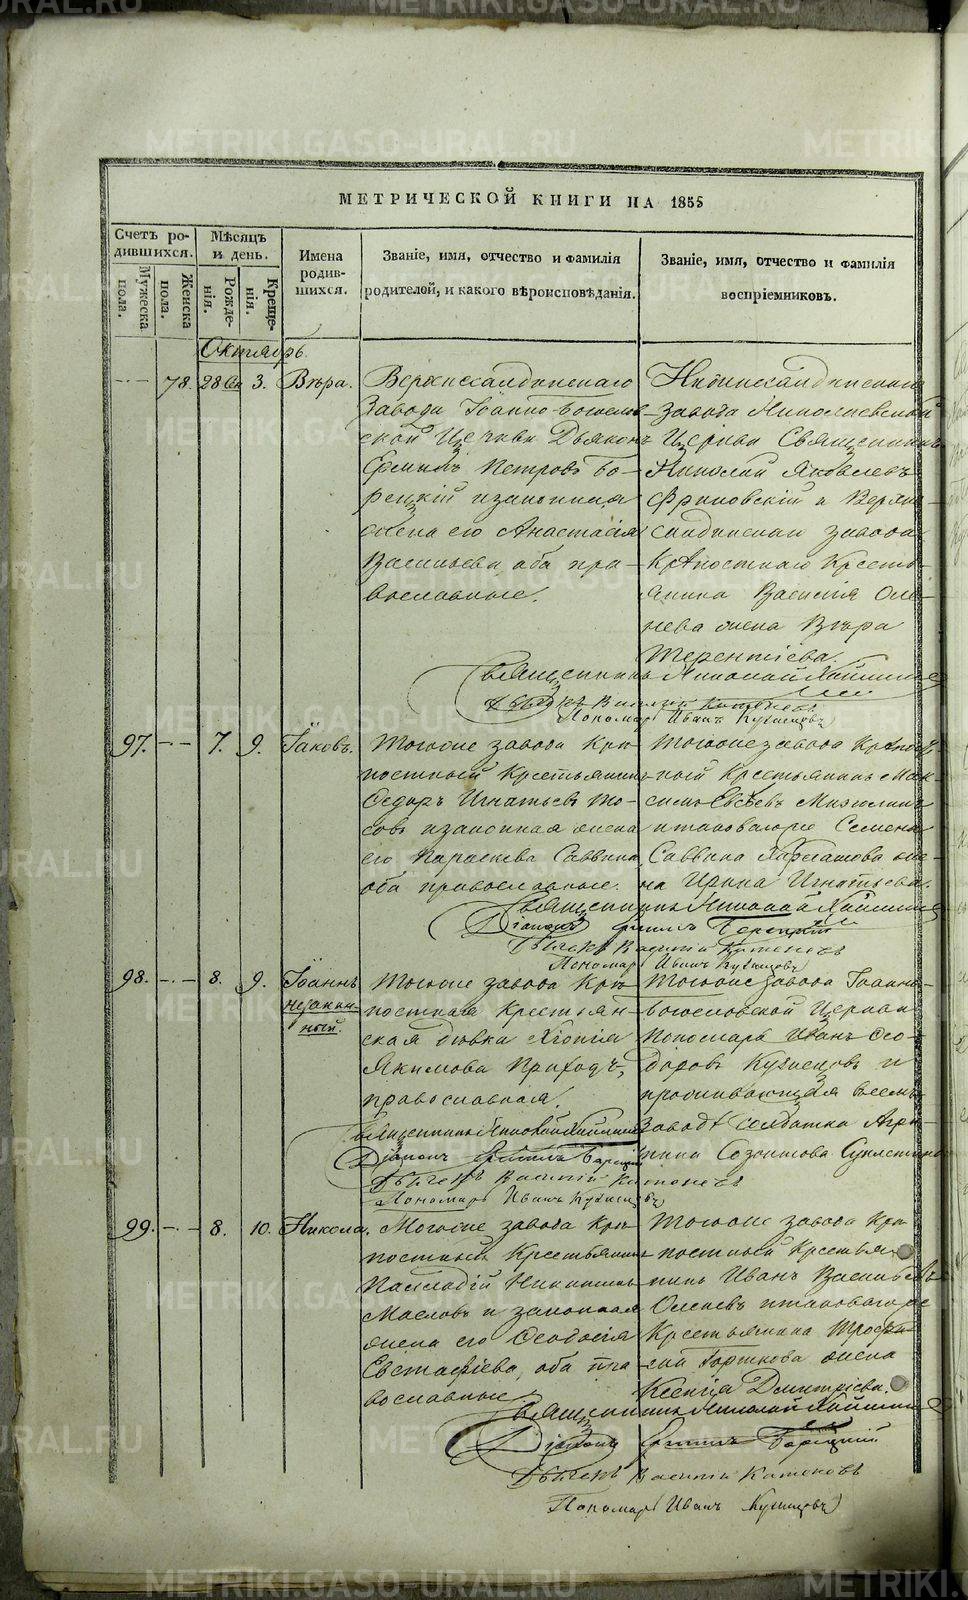 МЕТРИЧЕСКОЙ КНИГИ НА 1855
Счетъ родившихся.
Мужеска пола.
Женска пола.
Мѣсяцъ и день.
Рожденія.
Крещенія.
Имена родившихся.
Званіе, имя, отчество и фамилія родителей, и какого вѣроисповѣданія.
Званіе, имя, отчество и фамилія воспріемниковъ.
Октябрь.
78. 28 3. Вѣра.
Верхнесалдинскаго
Завода Іоанно-Богослов-
ской Церкви Дьяконъ
Ермилъ Петровъ Бо-
рецкій и законная
жена его Анастасія
Васильева, оба пра-
вославные.
Нижнесалдинскаго
завода Николаевской
Церкви Священникъ
Николай Яковлевъ
и Верхне-
салдинскаго завода
Крѣпостнаго Кресть-
янина Василія Оле-
нева жена Вѣра
Терентіева.
Священникъ Николай
Дьячекъ Василій
Пономарь Иванъ Кузнецовъ
97. 7. 9. Іаковъ.
Тогоже завода Крѣ-
постный Крестьянинъ
Ѳедоръ Игнатьевъ
и законная жена
его Параскева Саввина
оба православные.
Тогоже завода Крѣпост-
ный Крестьянинъ Мак-
симъ Евсѣевъ
и таковагоже Семена
Саввина же-
на Ирина Игнатьева.
Священникъ Николай
Діаконъ Ермилъ Борецкій
Дьячекъ Василій
Пономарь Иванъ Кузнецовъ
98. 8. 9. Іоаннъ
незакон-
ный.
Тогоже завода Крѣ-
постная Крестьян-
ская дѣвка Хіонія
Якимова
православная.
Тогоже завода Іоанно-
богословской Церкви
Пономарь Иванъ Ѳео-
доровъ Кузнецовъ и
проживающая в семъ
заводѣ солдатка Агри-
пина
Священникъ Николай
Діаконъ Ермилъ Борецкій
Дьячекъ Василій
Пономарь Иванъ Кузнецовъ
99. 8. 10. Никола.
Тогоже завода Крѣ-
постный Крестьянинъ
Палладій Никитинъ
Масловъ и законная
жена его Ѳеодосія
Евстафіева, оба пра-
вославные.
Тогоже завода Крѣ-
постный Крестья-
нинъ Иванъ Васильевъ
Оленевъ и таковагоже
Крестьянина Трофи-
ма Горткова жена
Ксенія Дмитріева.
Священникъ Николай
Діаконъ Ермилъ Борецкій
Дьячекъ Василій
Пономарь Иванъ Кузнецовъ
METRIKI.GASO-URAL.RU